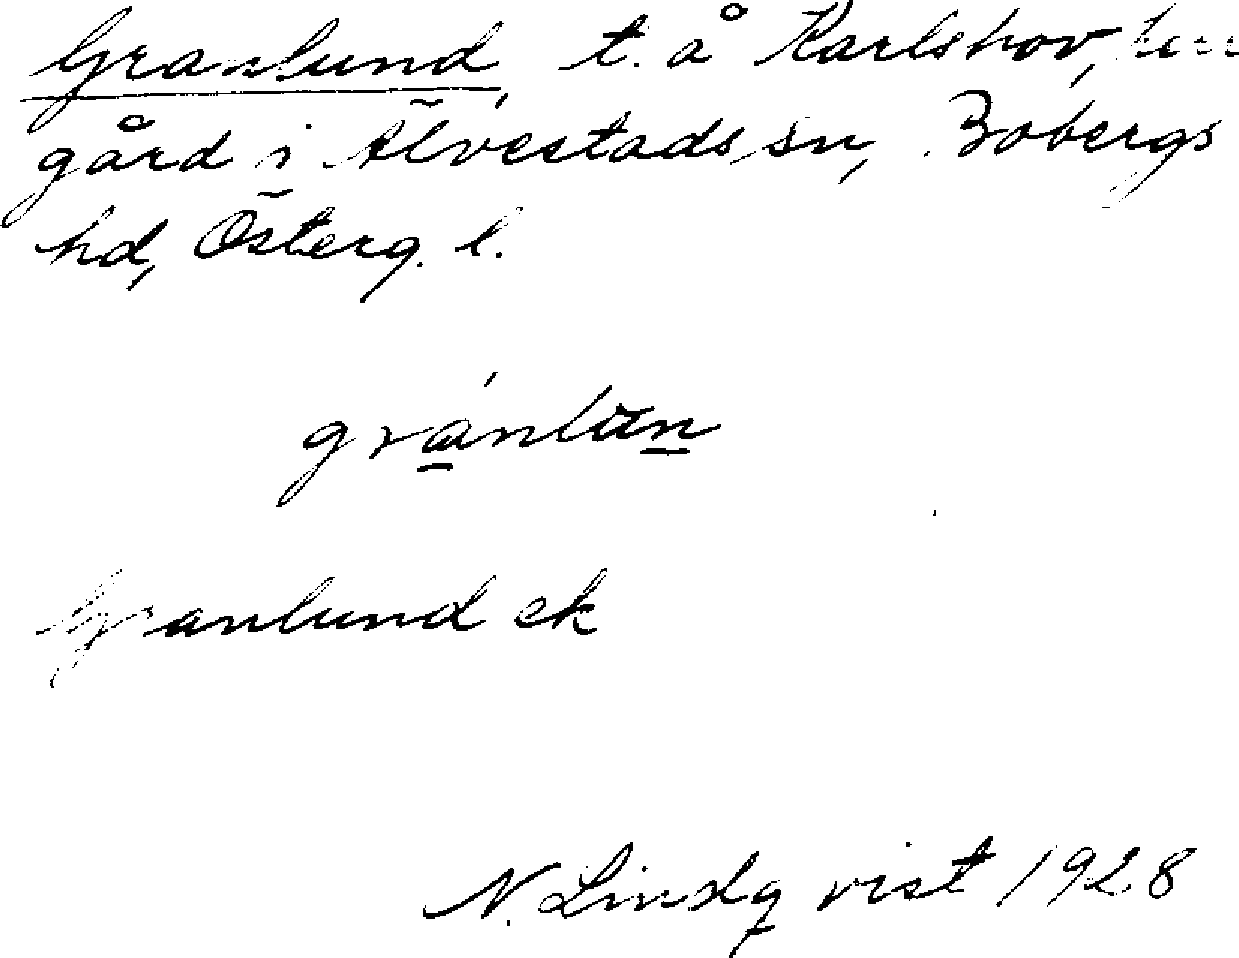 Granlund, t. å Karlshov, herr
gård i Älvestads sn, Bobergs
hd, Österg. l.
gránlun
Granlund ek
N. Lindqvist 1928